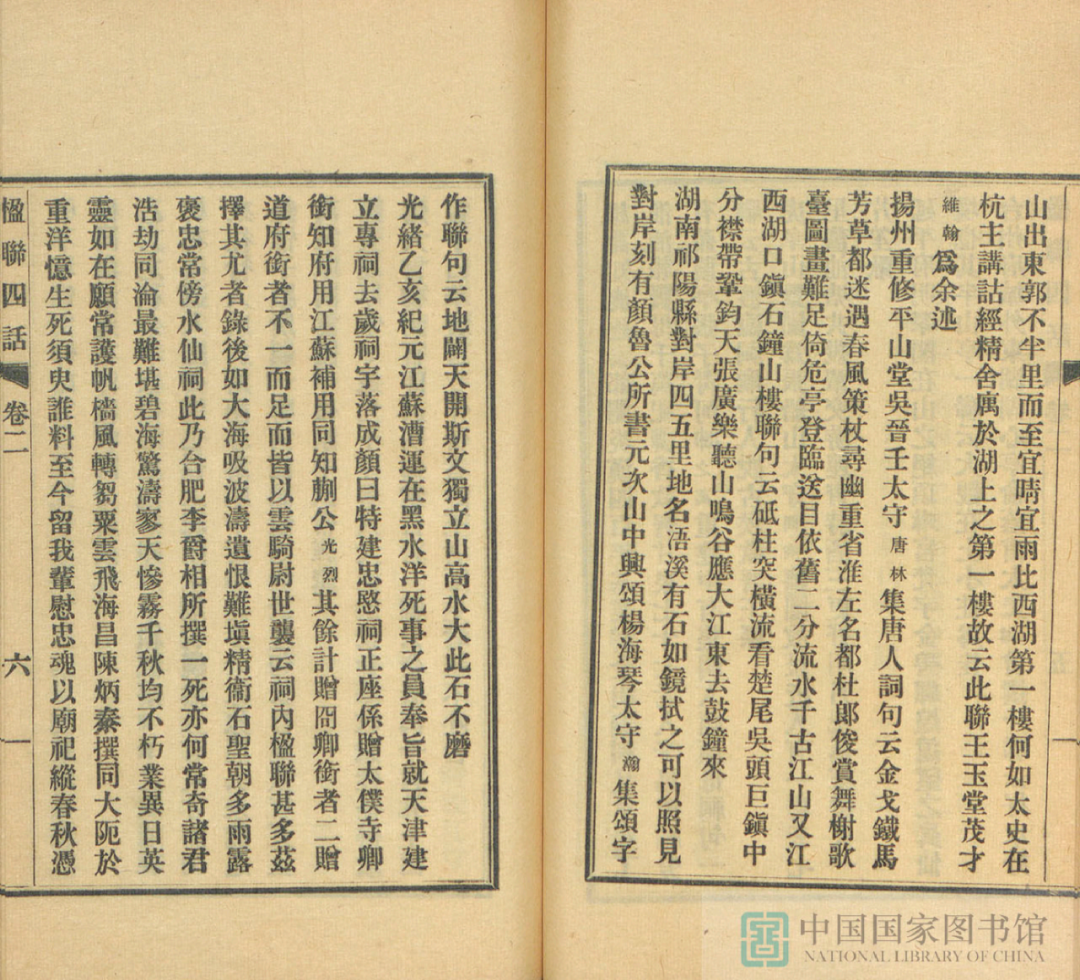 山出東郭不半里而至宜晴宜雨比西湖第一樓何如太史在
杭主講詁經精舍寓於湖上之第一樓故云此聯王玉堂茂才
維翰爲余述
揚州重修平山堂吳晉壬太守唐林集唐人詞句云金戈鐵馬
芳草都迷遇春風策杖尋幽重省淮左名都杜郎俊賞舞榭歌
臺圖畫難足倚危亭登臨送目依舊二分流水千古江山又江
西湖口鎭石鐘山樓聯句云砥柱突橫流看楚尾吳頭巨鎭中
分襟帶鞏鈞天張廣樂聽山鳴谷應大江東去鼓鐘來
湖南祁陽縣對岸四五里地名浯溪有石如鏡拭之可以照見
對岸刻有顏魯公所書元次山中興頌楊海琴太守瀚集頌字
作聯句云地闢天開斯文獨立山高水大此石不磨
光緒乙亥紀元江蘇漕運在黑水洋死事之員奉旨就天津建
立專祠去歲祠宇落成顏曰特建忠愍祠正座係贈太僕寺卿
銜知府用江蘇補用同知蒯公光烈其餘計贈冏卿銜者二贈
道府銜者不一而足而皆以雲騎尉世襲云祠內楹聯甚多茲
擇其尤者錄後如大海吸波濤遺恨難塡精衞石聖朝多雨露
褒忠常傍水仙祠此乃合肥李爵相所撰一死亦何常奇諸君
浩劫同淪最難堪碧海驚濤寥天慘霧千秋均不朽業異日英
靈如在願常護帆檣風轉芻粟雲飛海昌陳炳泰撰同大阨於
重洋憶生死須臾誰料至今留我輩慰忠魂以廟祀縱春秋憑
楹聯四話
卷二
六
中国国家图书馆
NATIONAL LIBRARY OF CHINA